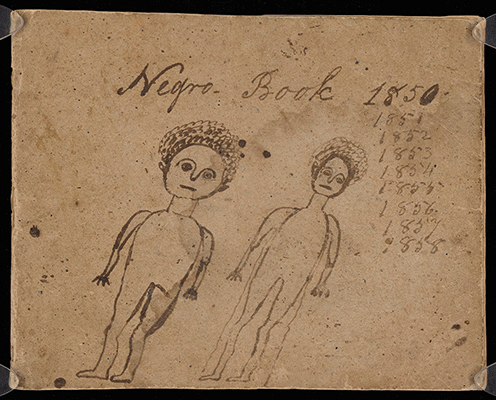 Negro Book 1850
1851
1852
1853
1854
1855
1856
1857
1858